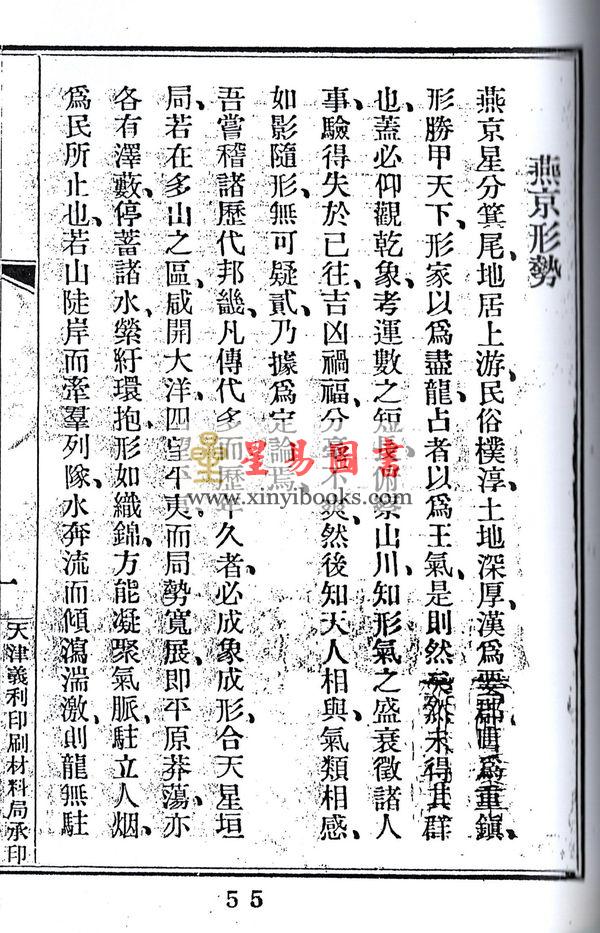 燕京形勢
燕京星分箕尾、地居上游、民俗樸淳、土地深厚、漢爲要郡、唐爲重鎮、
形勝甲天下、形家以爲盡龍、占者以爲王氣、是則然矣、然未得其詳
也、蓋必仰觀乾象、考運數之短長、俯察山川、知形氣之盛衰、徵諸人
事、驗得失於已往、吉凶禍福、分毫不爽、然後知天人相與、氣類相感、
如影隨形、無可疑貳、乃據爲定論焉、
吾嘗稽諸歷代邦畿、凡傳代多而歷年久者、必成象成形、合天星垣
局、若在多山之區、咸開大洋、四望平夷、而局勢寬展、即平原莽蕩、亦
各有澤藪、停蓄諸水、縈紆環抱、形如織錦、方能凝聚氣脈、駐立人烟、
爲民所止也、若山陡岸而牽羣列隊、水奔流而傾瀉湍激、則龍無駐
一
天津義利印刷材料局承印
星易圖書
www.xinyibooks.com
55